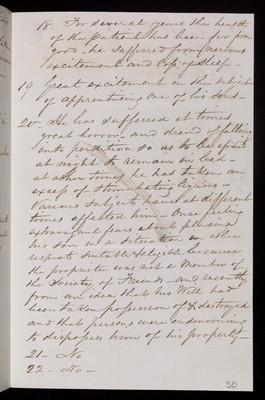 18. For several years the health
of the Patient has been far from
good - he suffered from nervous
excitement and loss of sleep -
19 Great excitement on the subject
of apprenticing one of his sons -
20 - He has suffered at times
great horror and dread of falling
into perdition so as to be afraid
at night to remain in bed -
at other times he has taken an
excess of stimulating liquors -
Various subjects have at different
times affected him - Once feeling
extravagant fears about placing
his son in a situation in other
respects suitable & eligible because
the proprietor was not a Member of
the Society of Friends - and recently
from an idea that his Will had
been taken possession of & destroyed
and that persons were endeavouring
to dispossess him of his property -
21 - No
22 - No -
30